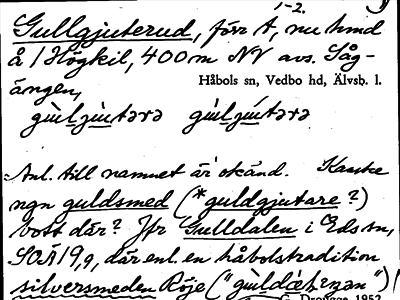 1-2.
Gullgjuterud, förr t, nu hmd
å 1 Högkil, 400 m NV avs. Såg-
Håbols sn, Vedbo hd, Älvsb. l.
ängen,
Anl. till namnet är okänd. Kanske
ngn guldsmed (*guldgjutare?)
bott där? Jfr Gulldalen i Eds sn,
SOÄ 19,9, där enl. en håbolstradition
silversmeden Röje
Drougge 1952